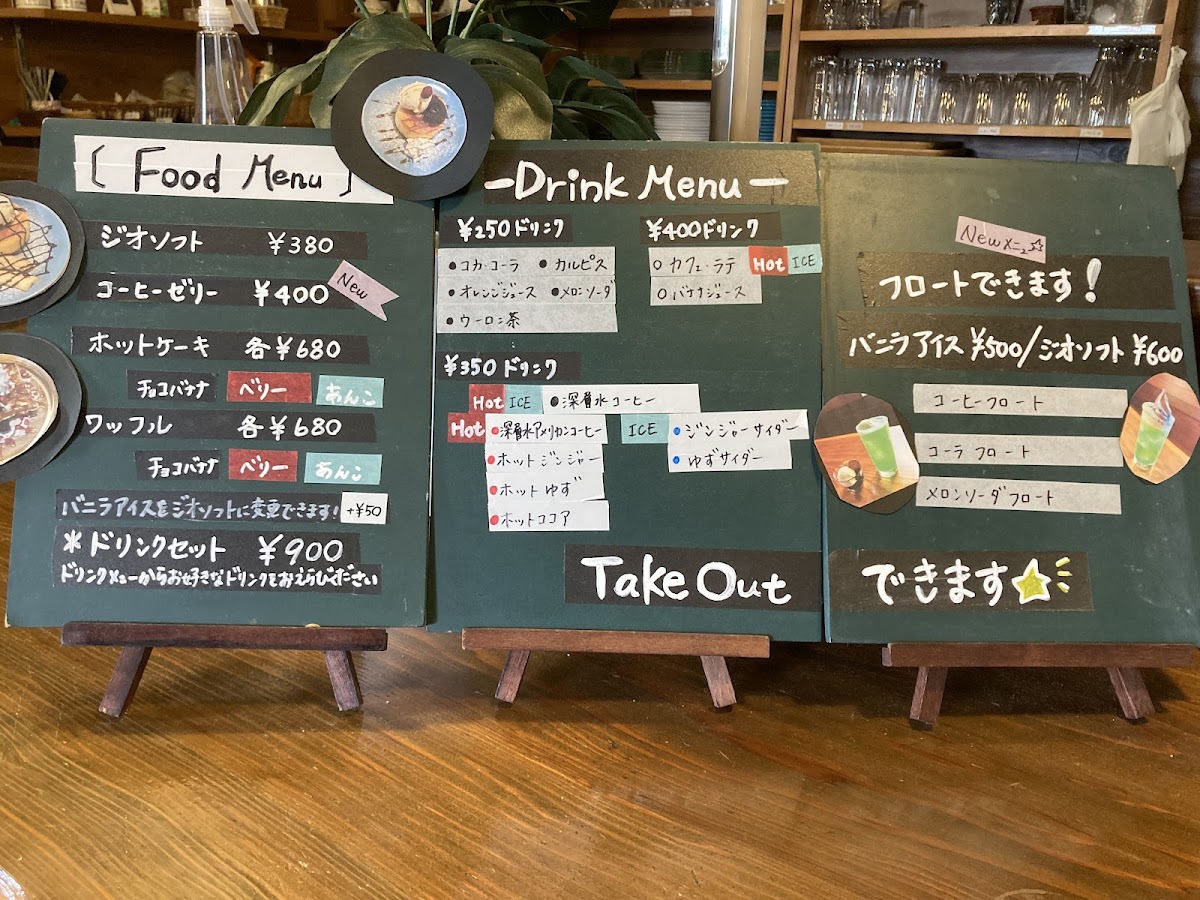 〔 Food Menu 〕
ジオソフト ¥380
コーヒーゼリー ¥400 New
ホットケーキ 各¥680
チョコバナナ ベリー あんこ
ワッフル 各¥680
チョコバナナ ベリー あんこ
バニラアイスをジオソフトに変更できます! +¥50
＊ドリンクセット ¥900
ドリンクメニューからお好きなドリンクをおえらびください
-Drink Menu-
¥250ドリンク
●コカ・コーラ ●カルピス
●オレンジジュース ●メロンソーダ
●ウーロン茶
¥400ドリンク
○カフェ・ラテ Hot ICE
○バナナジュース
¥350ドリンク
Hot ICE ●深層水コーヒー
Hot ●深層水アメリカンコーヒー
●ホットジンジャー
●ホットゆず
●ホットココア
ICE ●ジンジャーサイダー
●ゆずサイダー
Take Out
Newメニュー☆
フロートできます!
バニラアイス¥500/ジオソフト¥600
コーヒーフロート
コーラフロート
メロンソーダフロート
できます☆